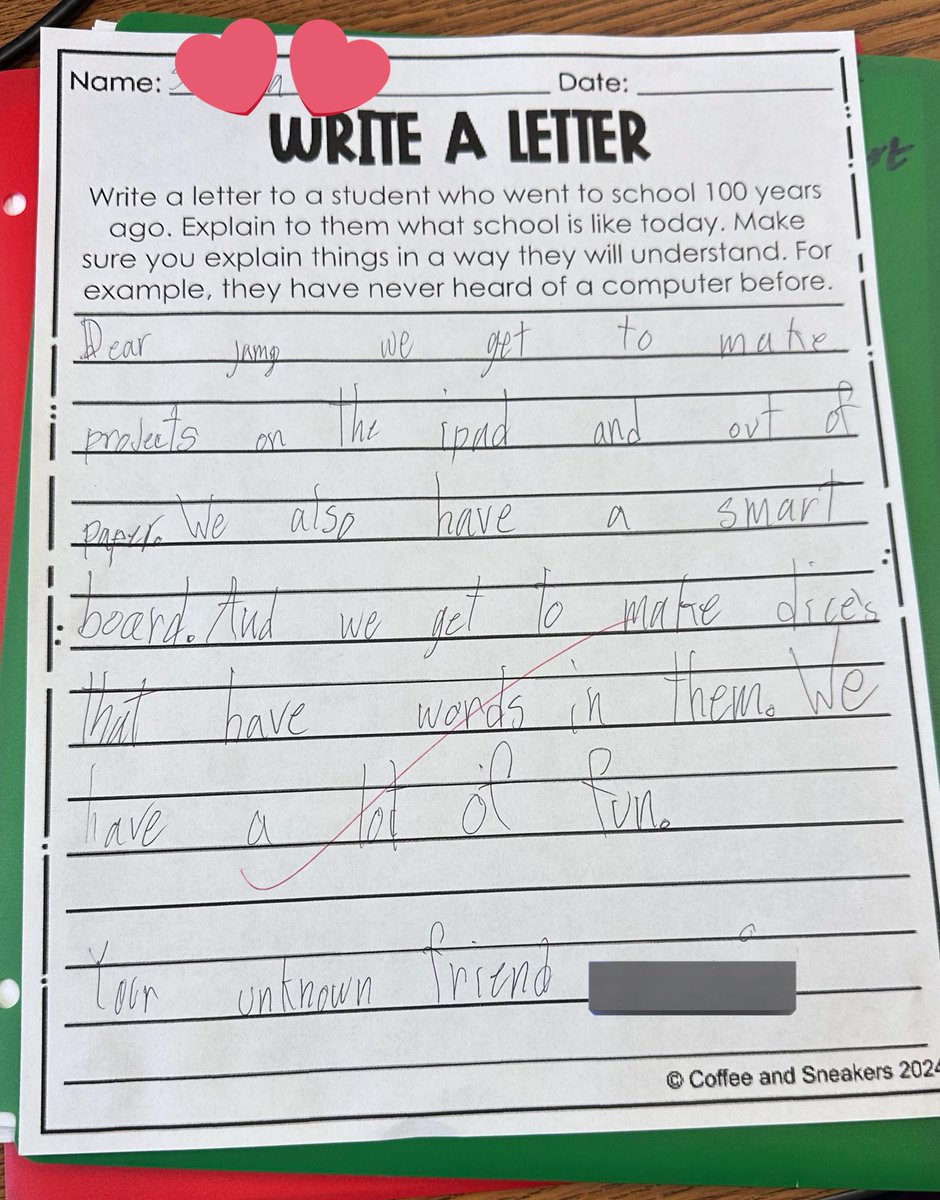 Name:
Date:
WRITE A LETTER
Write a letter to a student who went to school 100 years
ago. Explain to them what school is like today. Make
sure you explain things in a way they will understand. For
example, they have never heard of a computer before.
Dear we get to make
projects on the ipad and out of
paper. We also have a smart
board. And we get to make dice's
that have words in them. We
have a lot of fun.
Your unknown friend
© Coffee and Sneakers 2024